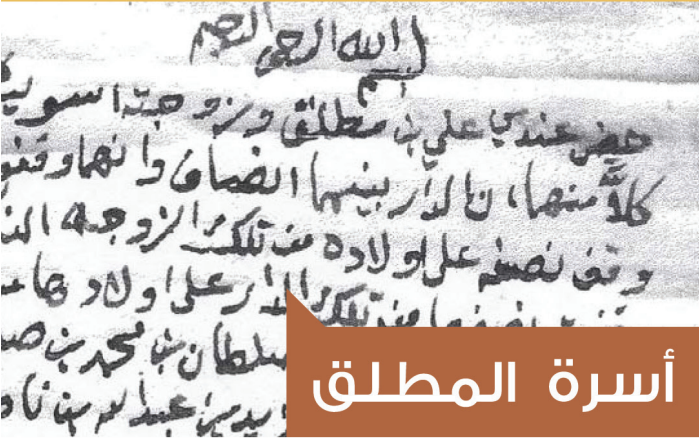 بسم الله الرحمن الرحيم
حضر عندي علي بن مطلق وزوجته اسويـ
كلاً منهما ان الدار بينهما انصاف وانهما وقفو
وقف نصفه على اولاده من تلك الزوجة
نصفها من تلك الدار على اولادها
سلطان بن محمد بن
عبدالله بن
أسرة المطلق